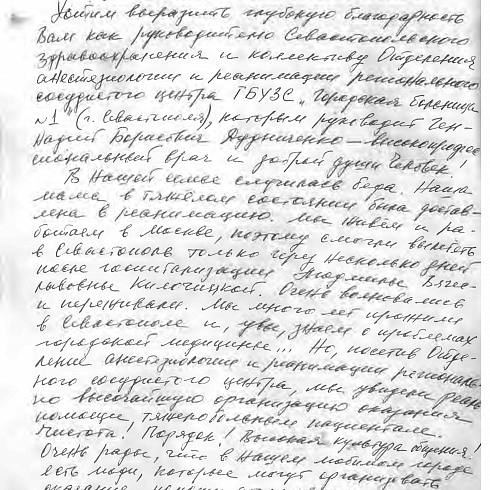 Хотим выразить глубокую благодарность
Вам как руководителю Севастопольского
здравоохранения и коллективу Отделения
анестезиологии и реанимации регионального
сосудистого центра ГБУЗС „Городская больница
№1" (г. Севастополя), которым руководит Ген-
надий Борисович — высокопрофес-
сиональный врач и доброй души человек!
В нашей семье случилась беда. Наша
мама в тяжёлом состоянии была достав-
лена в реанимацию. Мы живём и ра-
ботаем в Москве, поэтому смогли вылететь
в Севастополь только через несколько дней
после госпитализации Людмилы Вяче-
славовны. Очень волновались
и переживали. Мы много лет прожили
в Севастополе и, увы, знаем о проблемах
городской медицины... Но, посетив Отде-
ление анестезиологии и реанимации региональ-
ного сосудистого центра, мы увидели реаль-
но высочайшую организацию оказания
помощи тяжелобольным пациентам.
Чистота! Порядок! Высокая культура общения!
Очень рады, что в нашем любимом городе
есть люди, которые могут организовать
оказание помощи